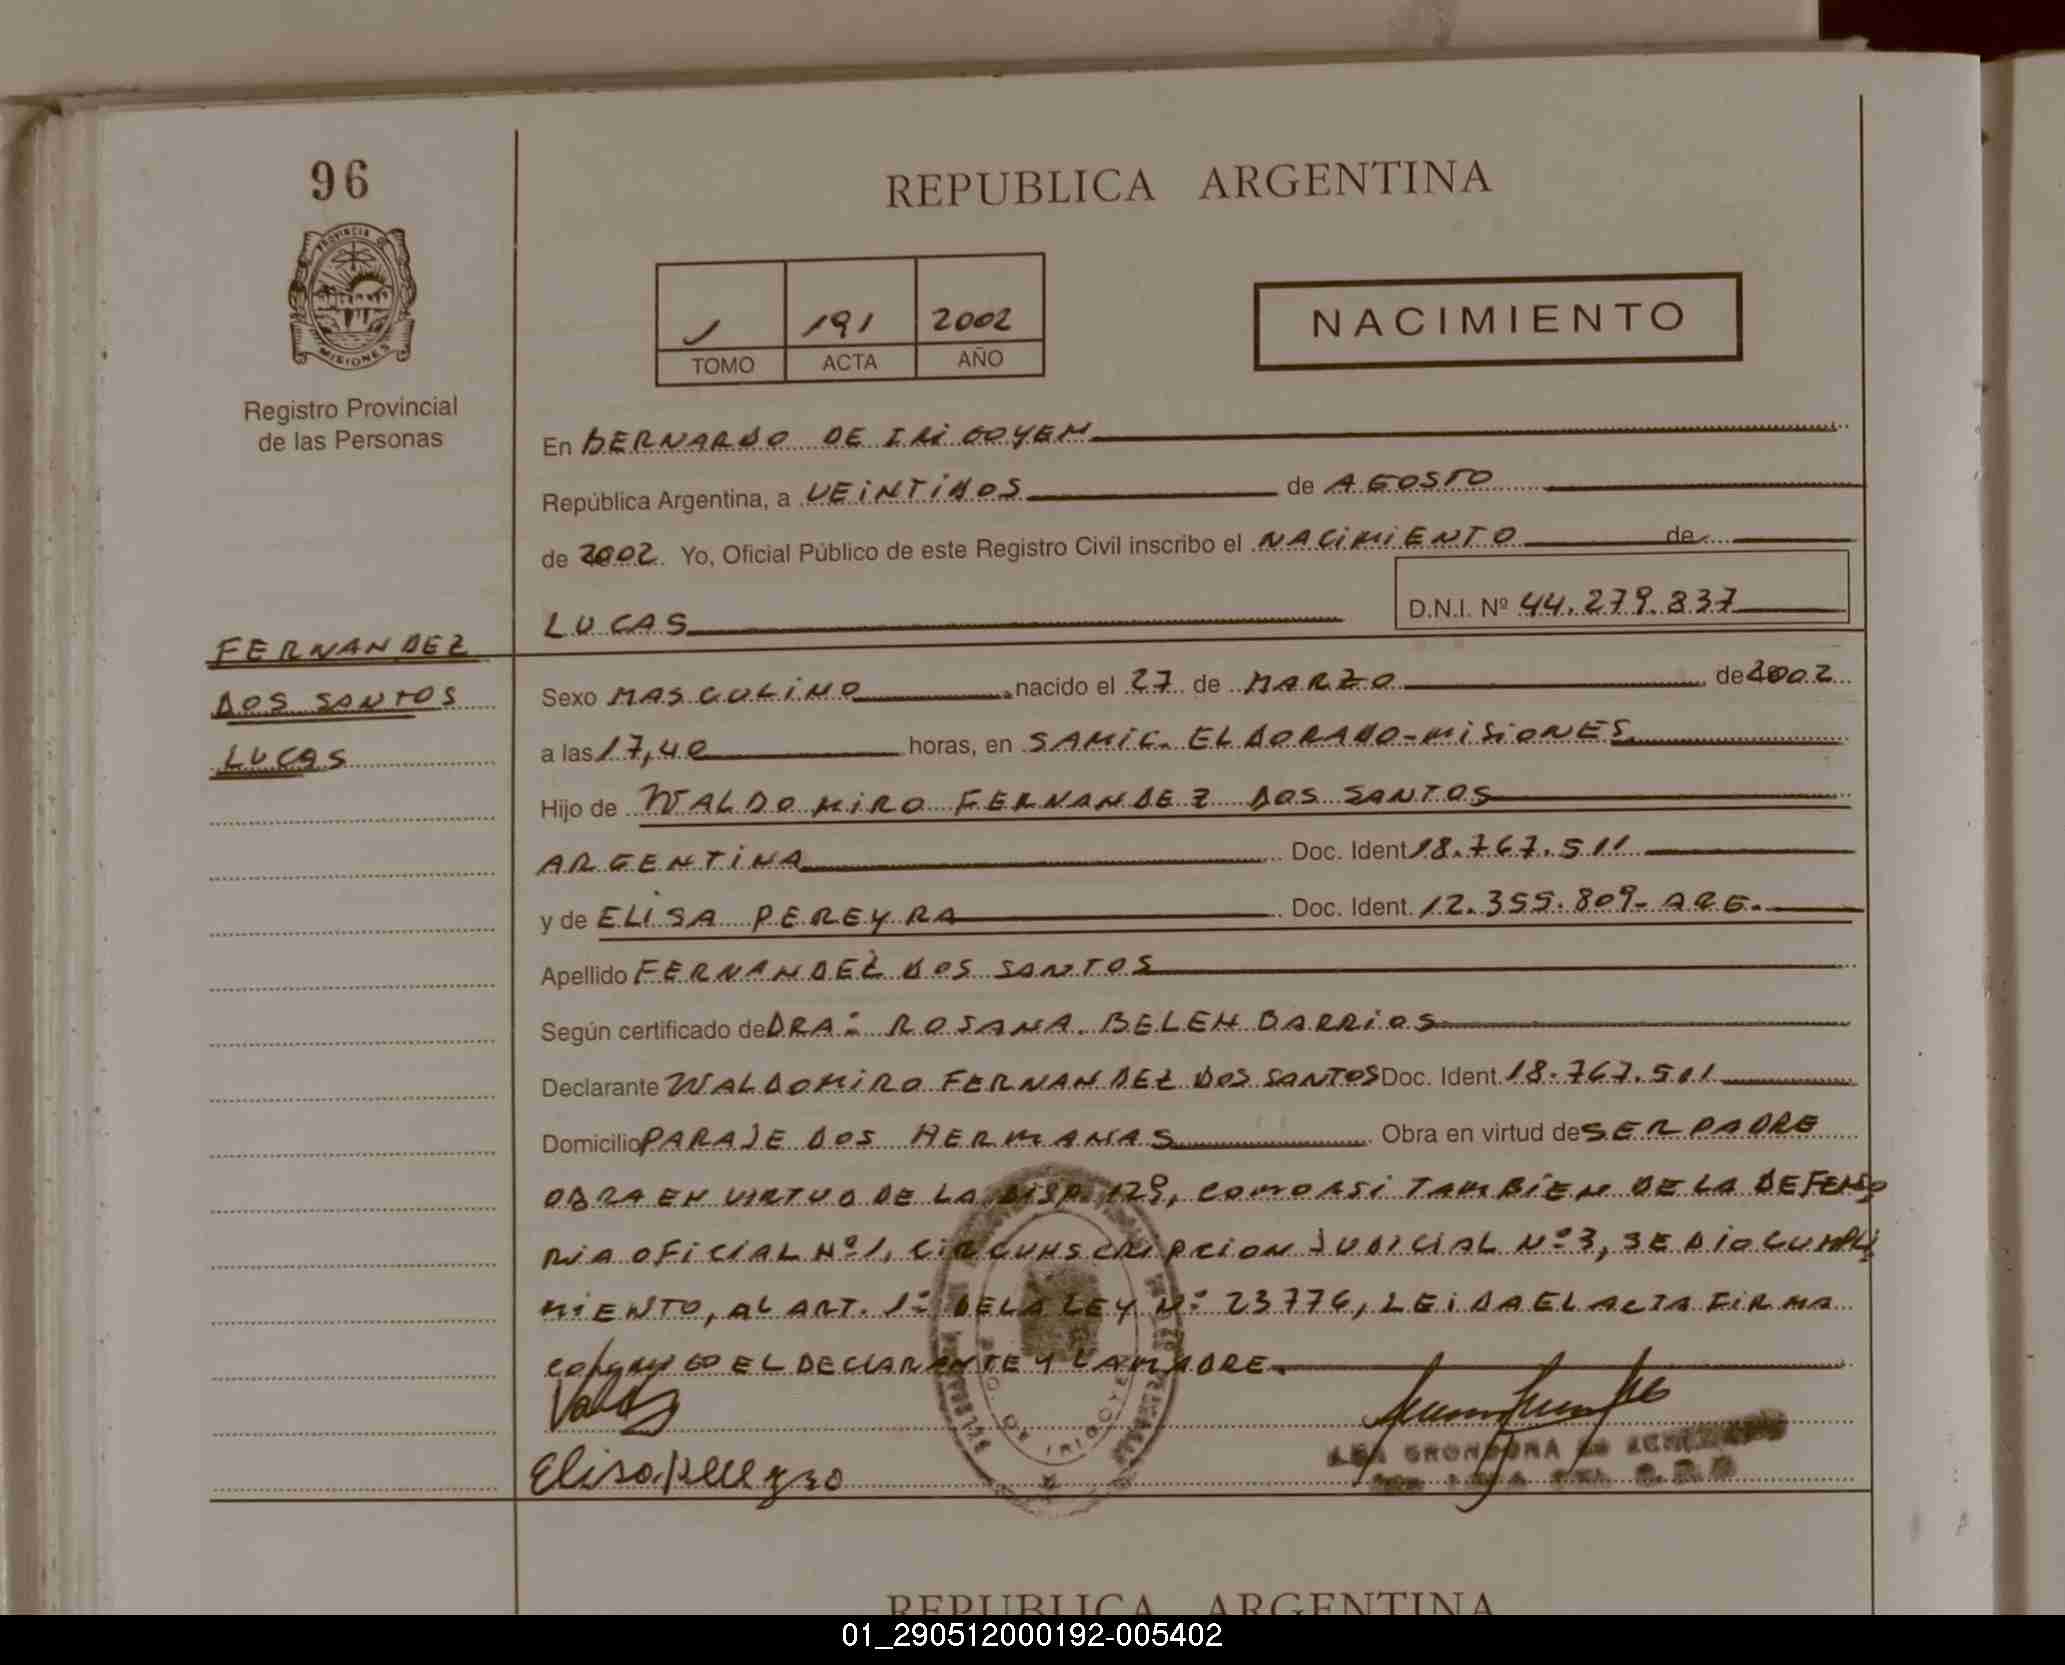 96
REPUBLICA ARGENTINA
PROVINCIA DE
MISIONES
Registro Provincial
de las Personas
1 191 2002
TOMO ACTA AÑO
NACIMIENTO
En BERNARDO DE IRIGOYEN
República Argentina, a VEINTIDOS de AGOSTO
de 2002. Yo, Oficial Público de este Registro Civil inscribo el NACIMIENTO de
LUCAS D.N.I. Nº 44.279.837
FERNANDEZ
DOS SANTOS
LUCAS
Sexo MASCULINO nacido el 27 de MARZO de 2002
a las 17,40 horas, en SAMIC. ELDORADO-MISIONES
Hijo de WALDOMIRO FERNANDEZ DOS SANTOS
ARGENTINA Doc. Ident. 18.767.511
y de ELISA PEREYRA Doc. Ident. 12.355.809- ARG.
Apellido FERNANDEZ DOS SANTOS
Según certificado de DRA: ROSANA BELEN BARRIOS
Declarante WALDOMIRO FERNANDEZ DOS SANTOS Doc. Ident. 18.767.511
Domicilio PARAJE DOS HERMANAS Obra en virtud de SER PADRE
OBRA EN VIRTUD DE LA DISP. 129, COMO ASI TAMBIEN DE LA DEFENSO
RIA OFICIAL Nº 1, CIRCUNSCRIPCION JUDICIAL Nº 3, SE DIO CUMPLI
MIENTO, AL ART. 1º DE LA LEY Nº 23776, LEIDA EL ACTA FIRMA
CONMIGO EL DECLARANTE Y LA MADRE.
Elisa Pereyra
DE IRIGOYEN
REPUBLICA ARGENTINA
01_290512000192-005402